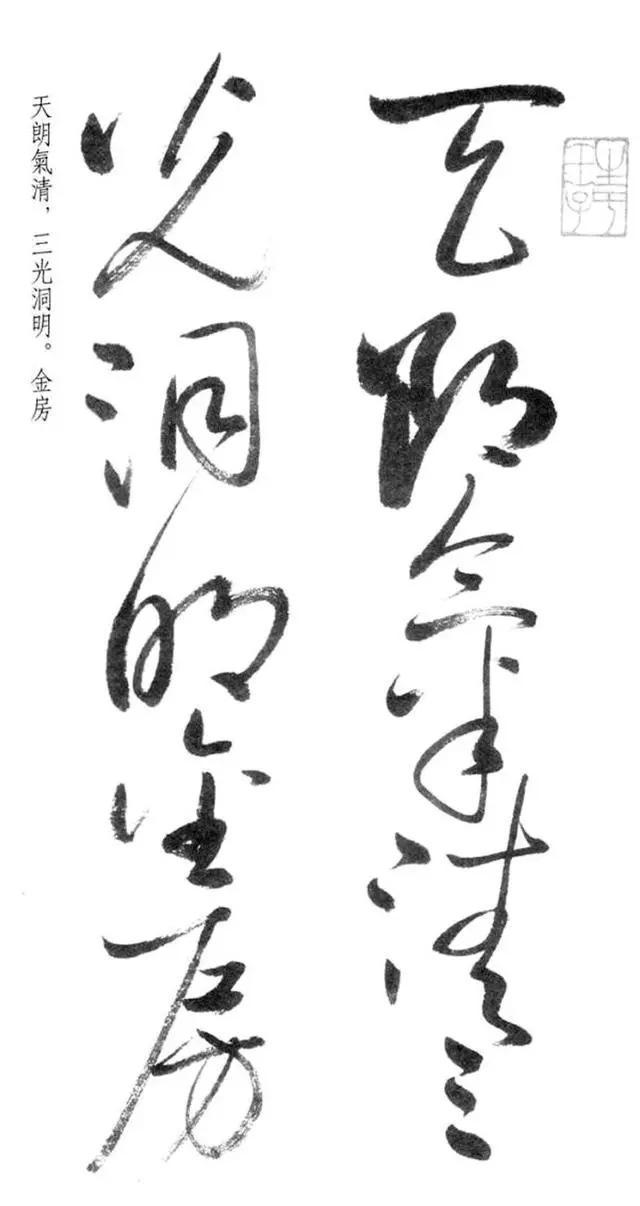 天朗氣清三
光洞明金房
天朗氣清，三光洞明。金房